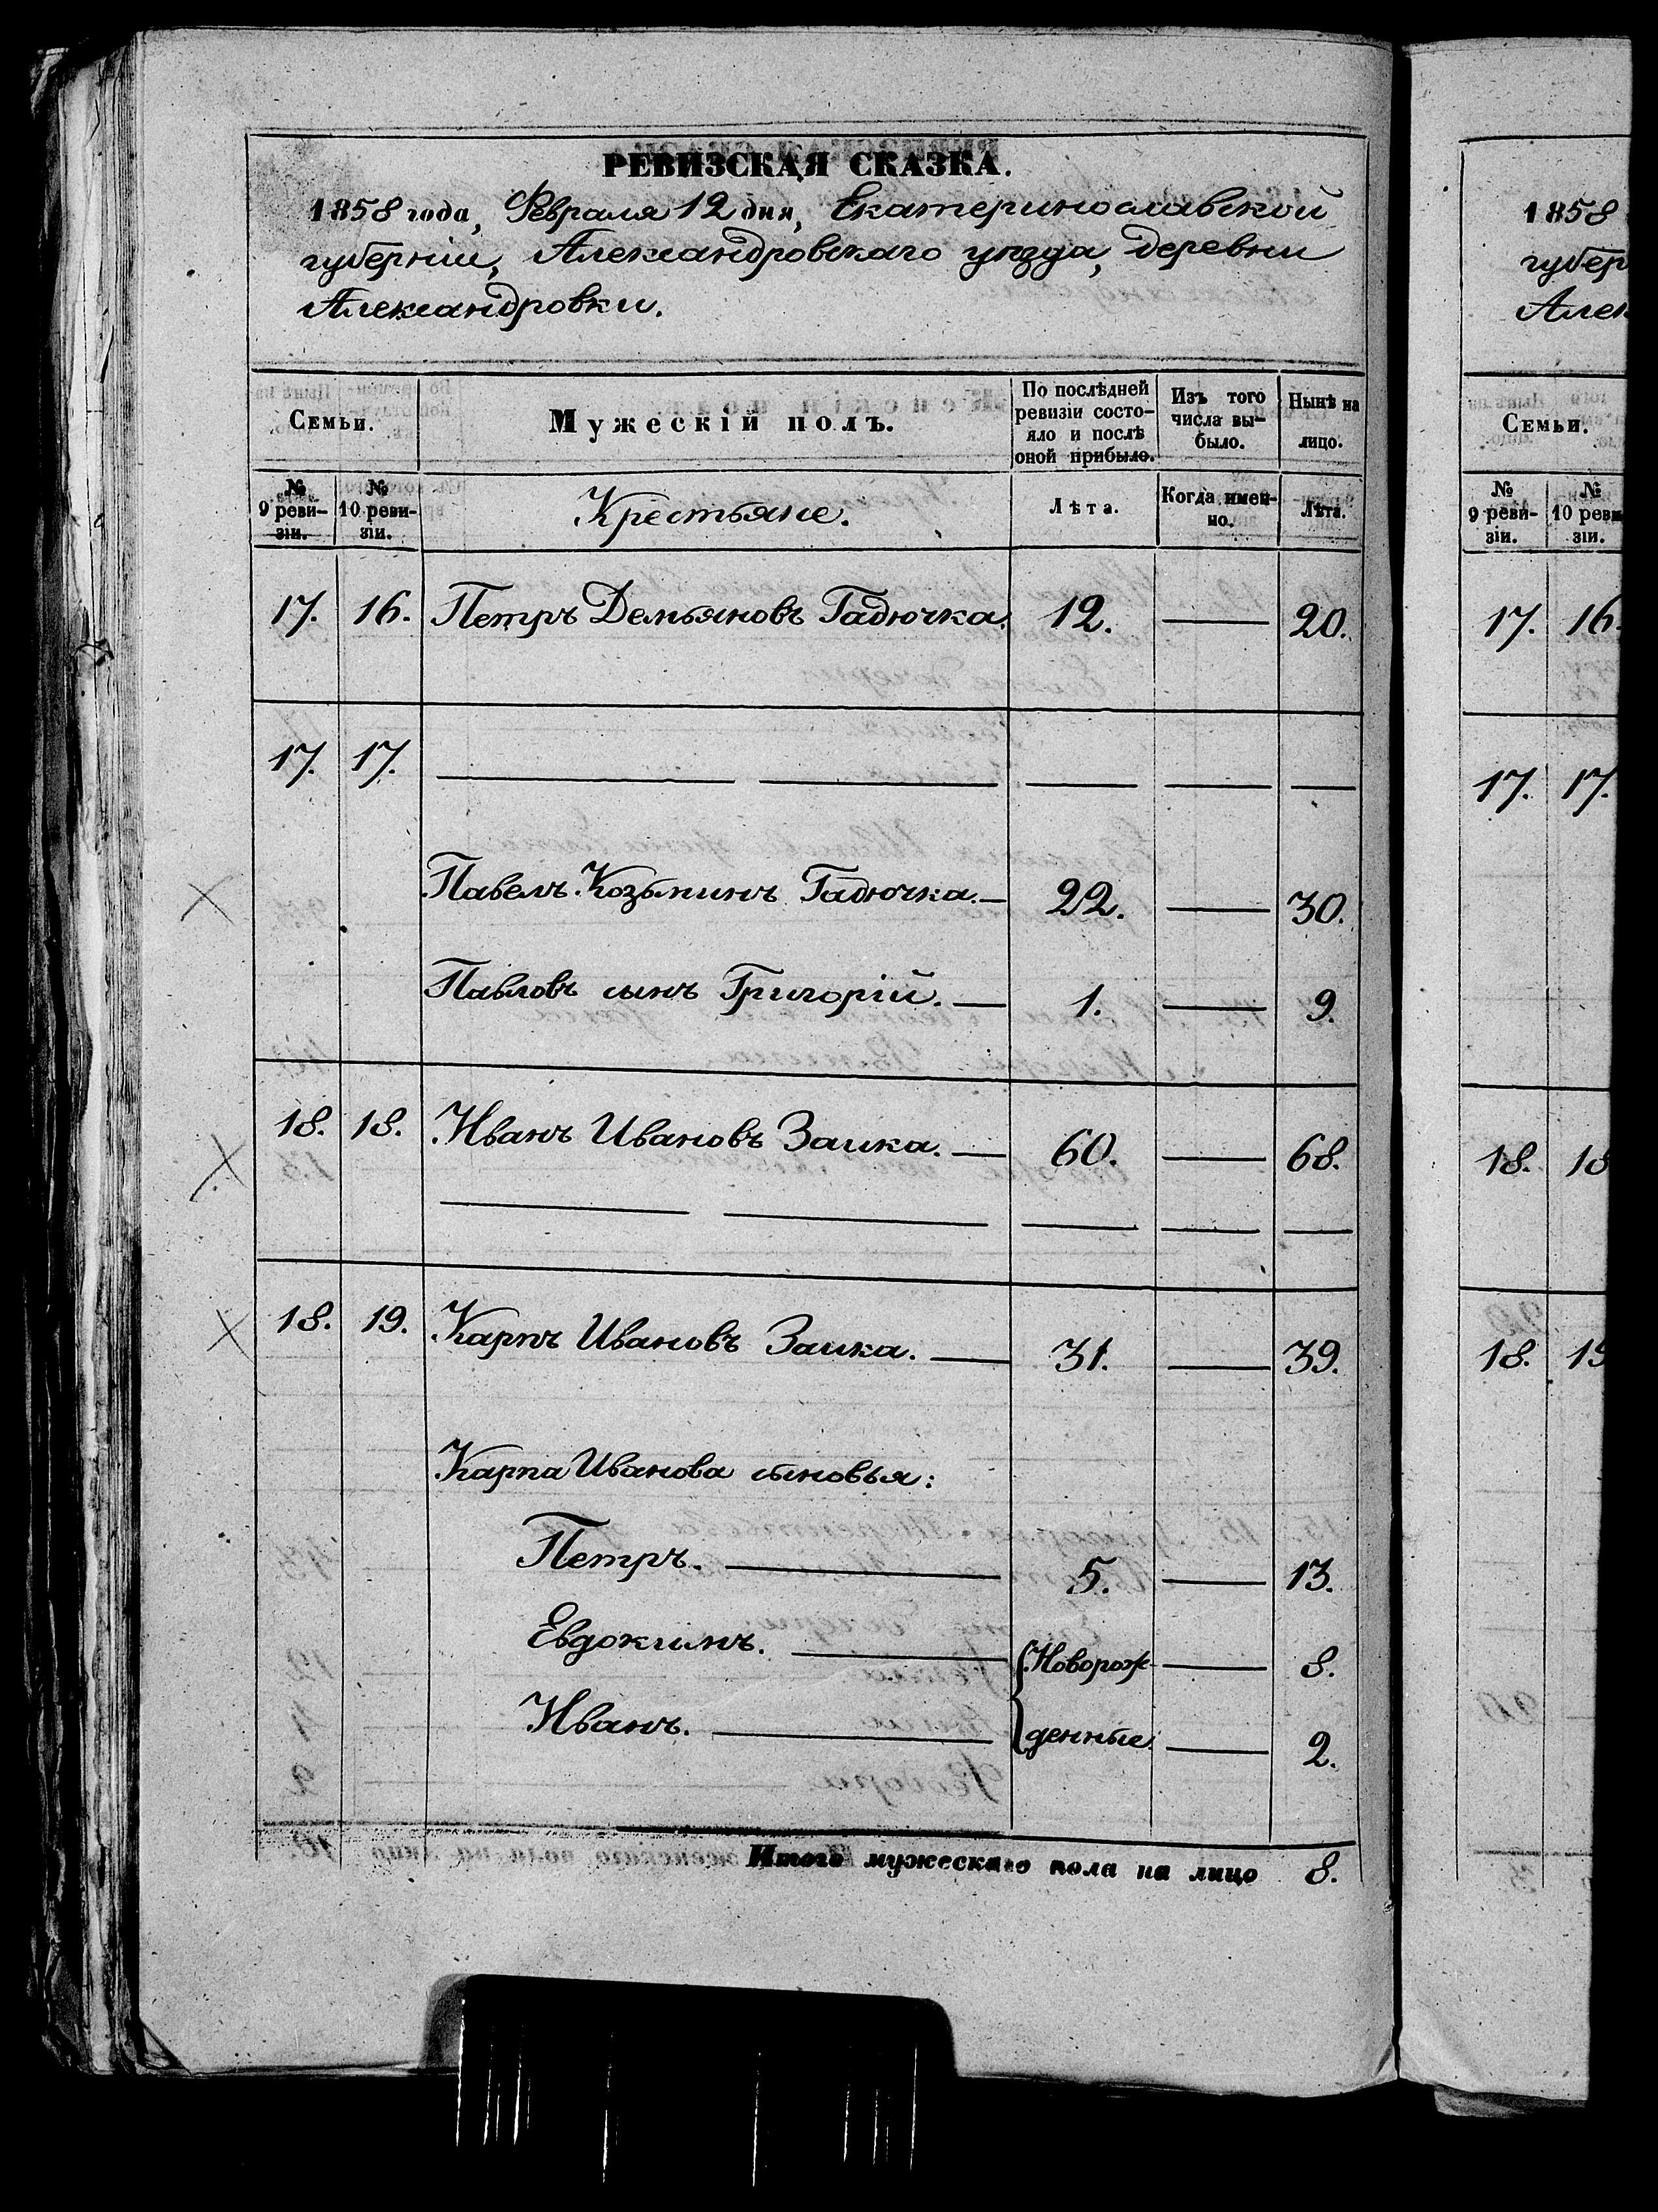 РЕВИЗСКАЯ СКАЗКА.
1858 года, Февраля 12 дня, Екатеринославской
губерніи, Александровскаго уѣзда, деревни
Александровки.
Семьи. Мужескій полъ. По послѣдней ревизіи состо-яло и послѣ оной прибыло. Изъ того числа вы-было. Нынѣ на лицо.
№ 9 реви-зіи. № 10 реви-зіи. Крестьяне. Лѣта. Когда имен-но. Лѣта.
17. 16. Петръ Демьяновъ Гадючка. 12. — 20.
17. 17. — — — — —
Павелъ Козьминъ Гадючка. — 22. — 30.
Павловъ сынъ Григорій. — 1. — 9.
18. 18. Иванъ Ивановъ Заика. — 60. — 68.
— — — — —
18. 19. Карпъ Ивановъ Заика. — 31. — 39.
Карпа Иванова сыновья:
Петръ. — 5. — 13.
Евдокимъ. — Новорож- — 8.
Иванъ. — денные. — 2.
Итого мужескаго пола на лицо 8.
1858
губер
Алек
Семьи.
№ 9 реви-зіи. № 10 реви-зіи.
17. 16.
17. 17.
18. 18
18. 19